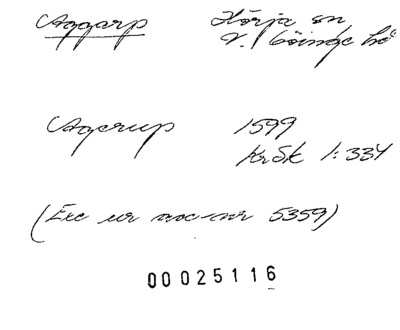 Aggarp Hörja sn
V. Göinge hd
Agerup 1599
KrSk 1:334
(Exc ur acc-nr 5359)
00025116